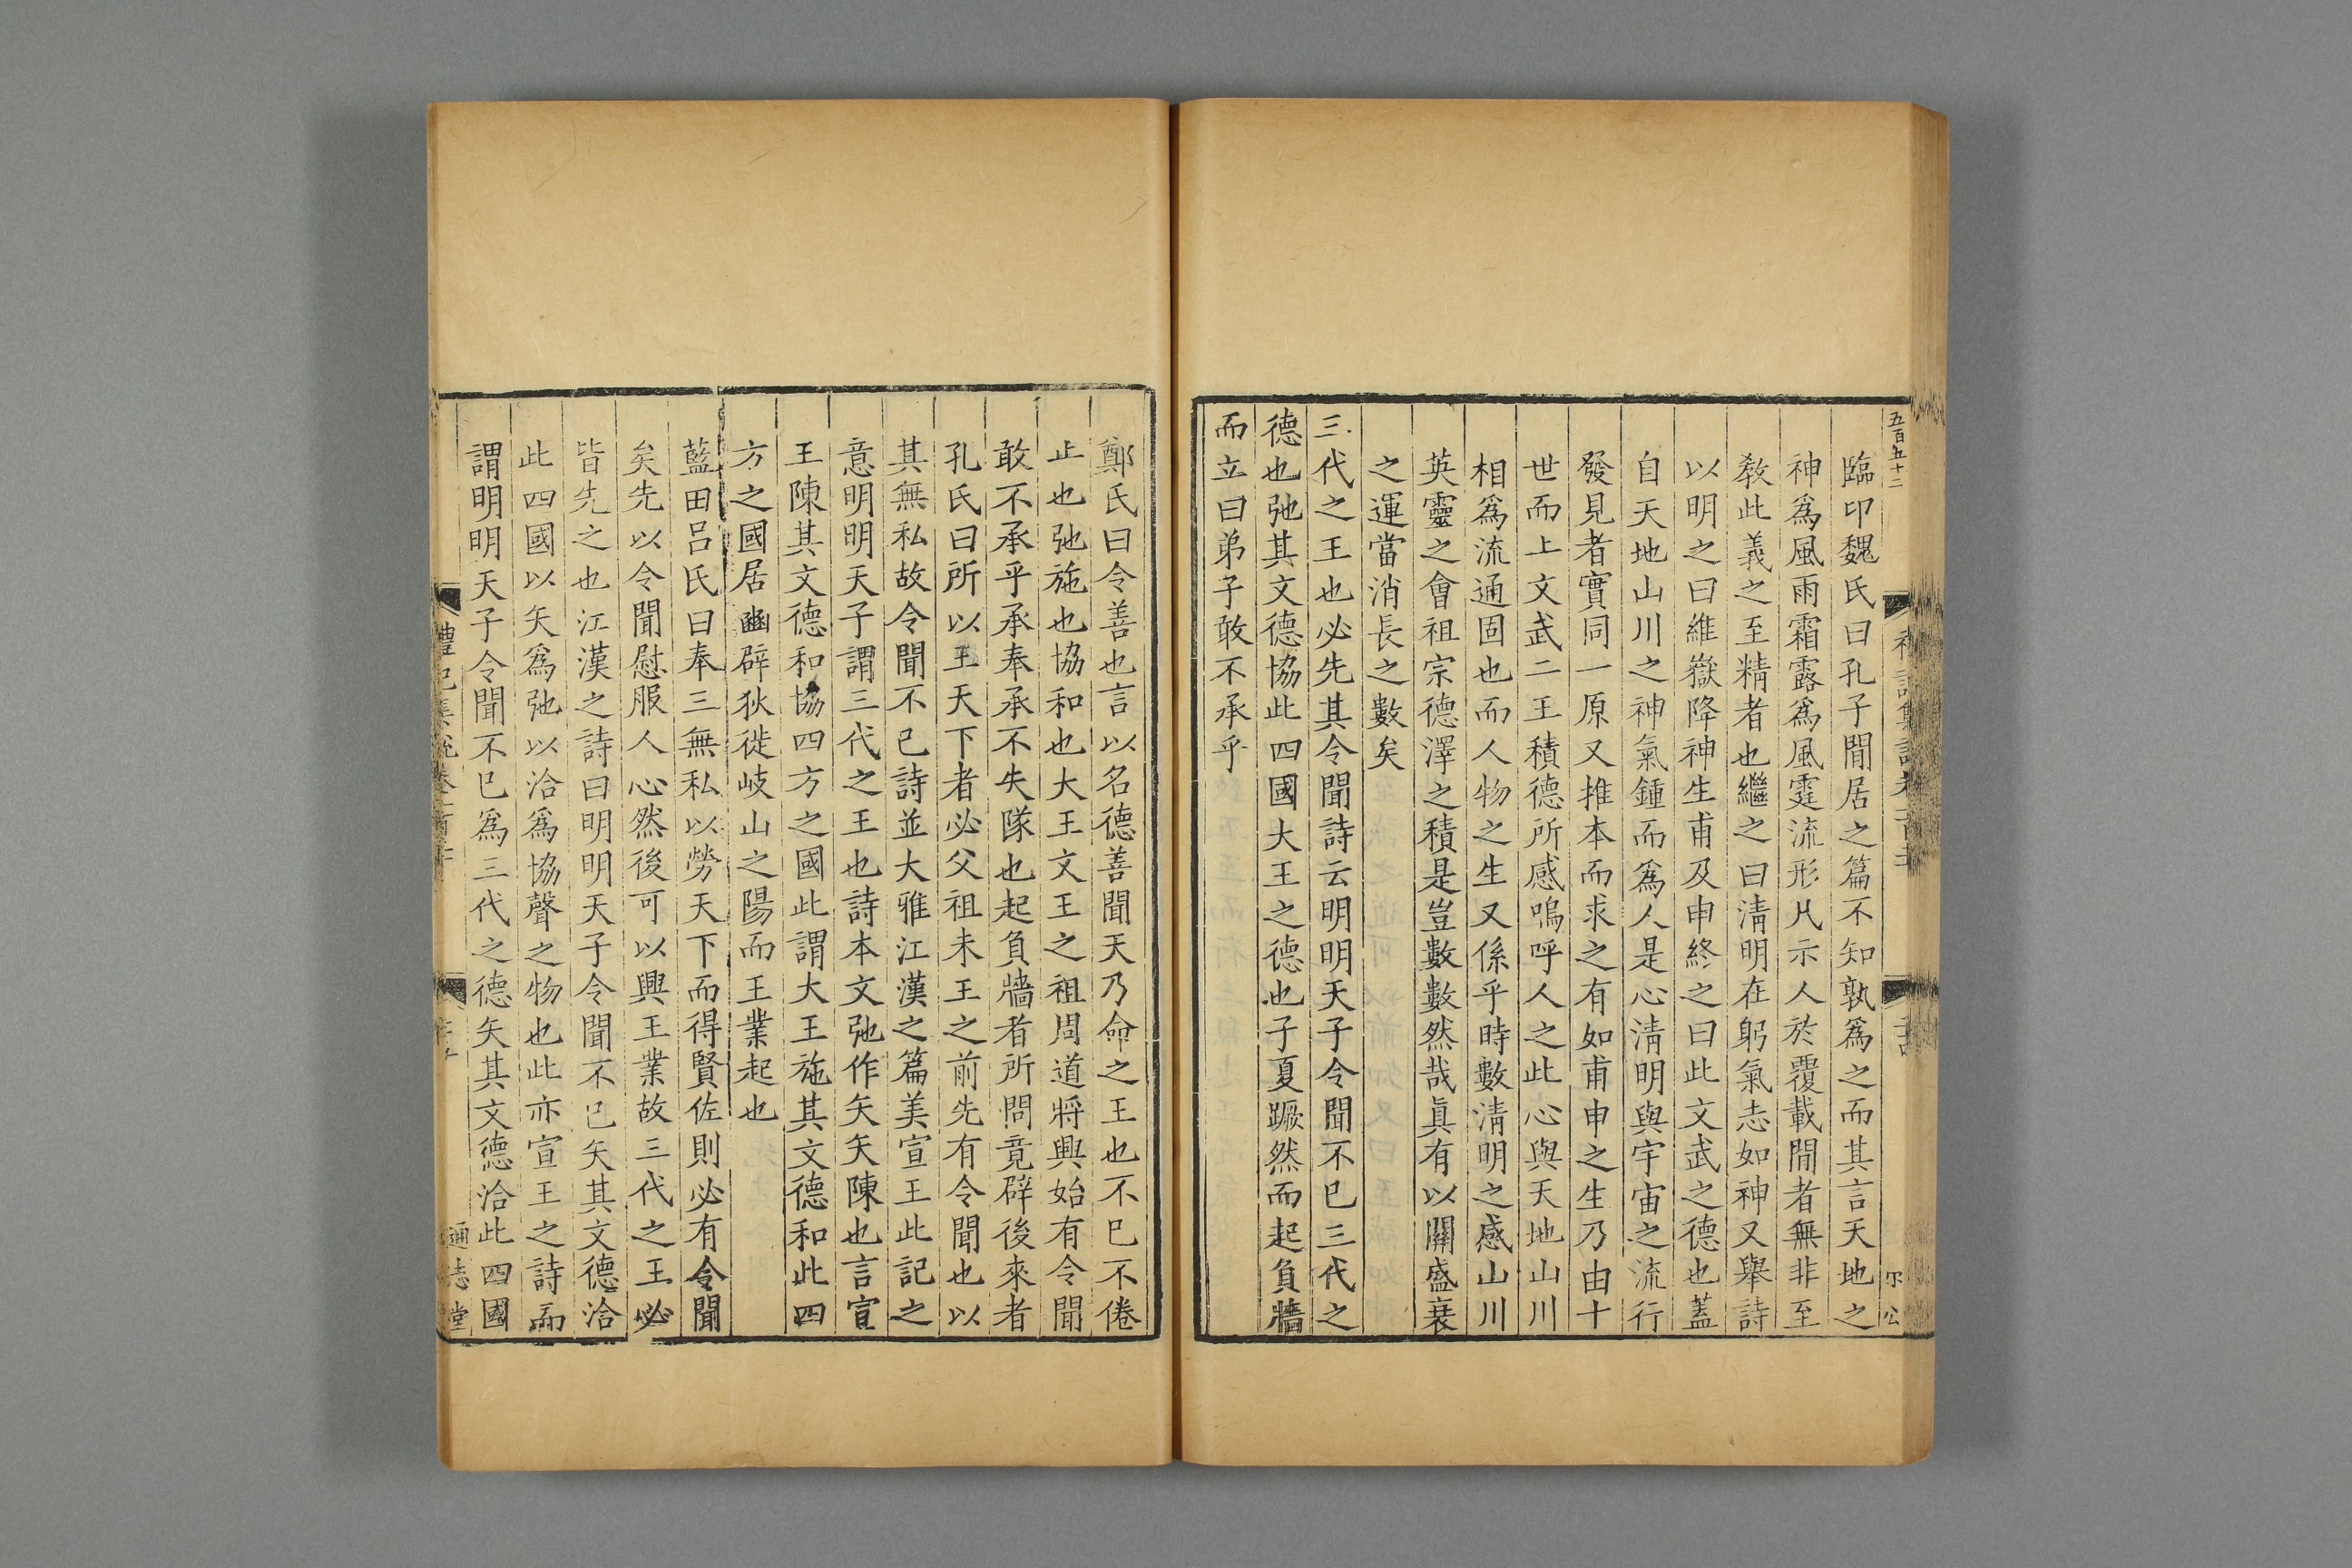 五百五十二
臨卭魏氏曰孔子閒居之篇不知孰爲之而其言天地之
神爲風雨霜露爲風霆流形凡示人於覆載閒者無非至
敎此義之至精者也繼之曰淸明在躬氣志如神又舉詩
以明之曰維嶽降神生甫及申終之曰此文武之德也蓋
自天地山川之神氣鍾而爲人是心淸明與宇宙之流行
發見者實同一原又推本而求之有如甫申之生乃由十
世而上文武二王積德所感嗚呼人之此心與天地山川
相爲流通固也而人物之生又係乎時數淸明之感山川
英靈之會祖宗德澤之積是豈數數然哉眞有以關盛衰
之運當消長之數矣
三代之王也必先其令聞詩云明明天子令聞不已三代之
德也弛其文德協此四國大王之德也子夏蹶然而起負牆
而立曰弟子敢不承乎
鄭氏曰令善也言以名德善聞天乃命之王也不已不倦
止也弛施也協和也大王文王之祖周道將興始有令聞
敢不承乎承奉承不失隊也起負牆者所問竟辟後來者
孔氏曰所以王天下者必父祖未王之前先有令聞也以
其無私故令聞不已詩並大雅江漢之篇美宣王此記之
意明明天子謂三代之王也詩本文弛作矢矢陳也言宣
王陳其文德和協四方之國此謂大王施其文德和此四
方之國居豳辟狄徙岐山之陽而王業起也
藍田呂氏曰奉三無私以勞天下而得賢佐則必有令聞
矣先以令聞慰服人心然後可以興王業故三代之王必
皆先之也江漢之詩曰明明天子令聞不已矢其文德洽
此四國以矢爲弛以洽爲協聲之物也此亦宣王之詩而
謂明明天子令聞不已爲三代之德矢其文德洽此四國
禮記集說卷一百二十
通志堂